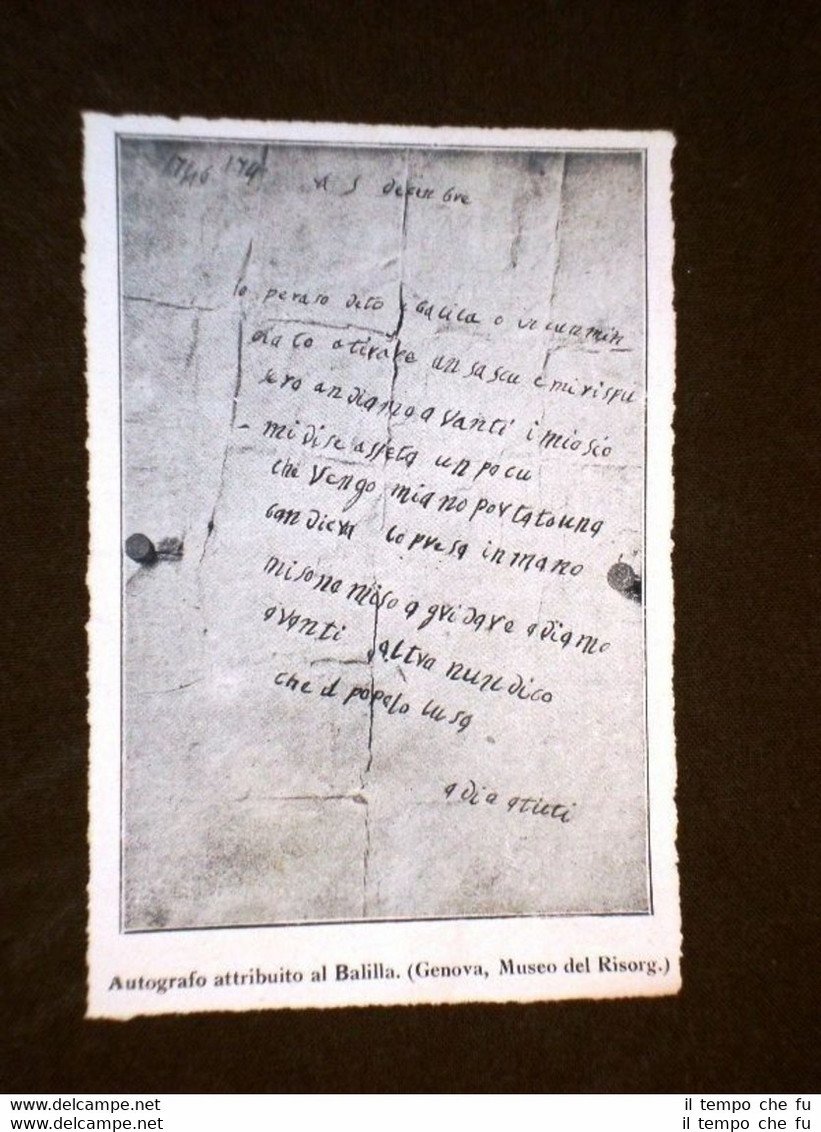 1746 174
A 5 decenbre
Io peraso deto balila o incumin
ciato a tirare un sascu e mi rispu
sero andiamo avanti i mio sio
mi dise aspeta un pocu
che vengo mi ano portato una
bandiera lo presa in mano
mi sono miso a gridare adiamo
avanti altra nun dico
che il popolo lu sa
adia a tuti
Autografo attribuito al Balilla. (Genova, Museo del Risorg.)
www.delcampe.net
www.delcampe.net
il tempo che fu
il tempo che fu